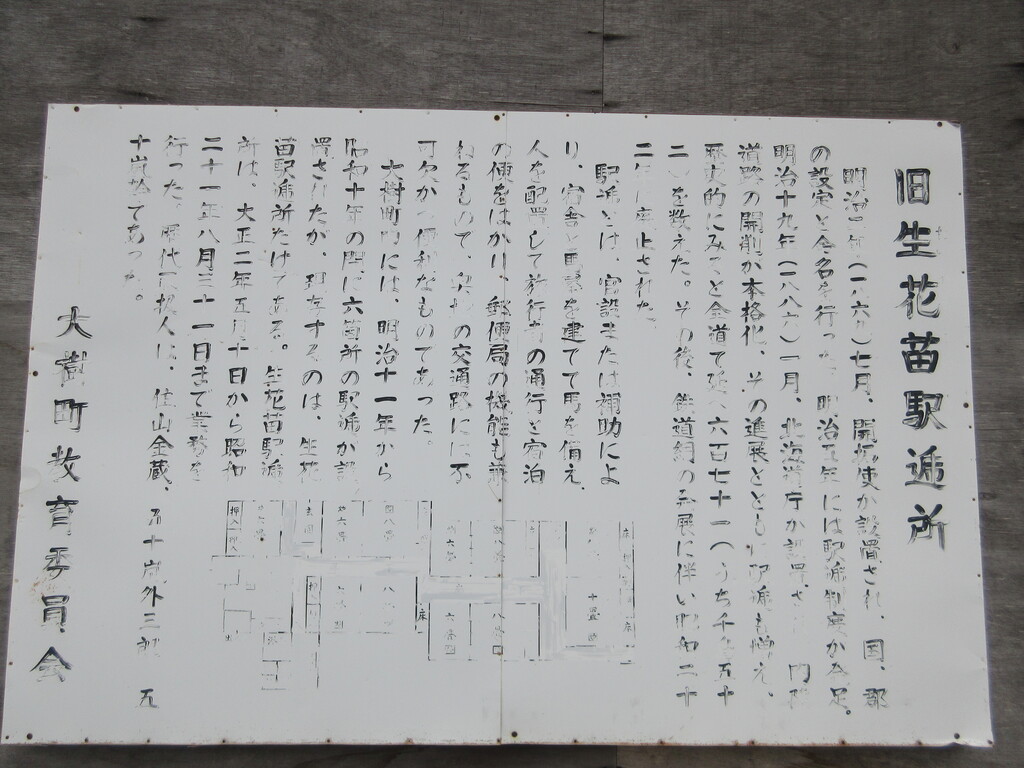 旧生花苗駅逓所
明治二年(一八六九)七月、開拓使が設置され、国、郡
の設定と命名を行った。明治五年には駅逓制度が発足。
明治十九年(一八八六)一月、北海道庁が設置され、内陸
道路の開削が本格化、その進展とともに駅逓も増え、
歴史的にみると全道で延べ六百七十一(うち千島五十
二)を数えた。その後、鉄道網の発展に伴い昭和二十
二年に廃止された。
駅逓とは、官設または補助によ
り、宿舎と厩舎を建てて馬を備え、
人を配置して旅行者の通行と宿泊
の便をはかり、郵便局の機能も兼
ねるもので、の交通路には不
可欠かつ便利なものであった。
大樹町内には、明治十一年から
昭和十年の間に六箇所の駅逓が設
置されたが、現存するのは、生花
苗駅逓所だけである。生花苗駅逓
所は、大正二年五月十日から昭和
二十一年八月三十一日まで業務を
行った。歴代取扱人は、住山金蔵、五十嵐外三郎、五
十嵐於てあった。
大樹町教育委員会
押入
玄関
六畳
八畳
床
十畳